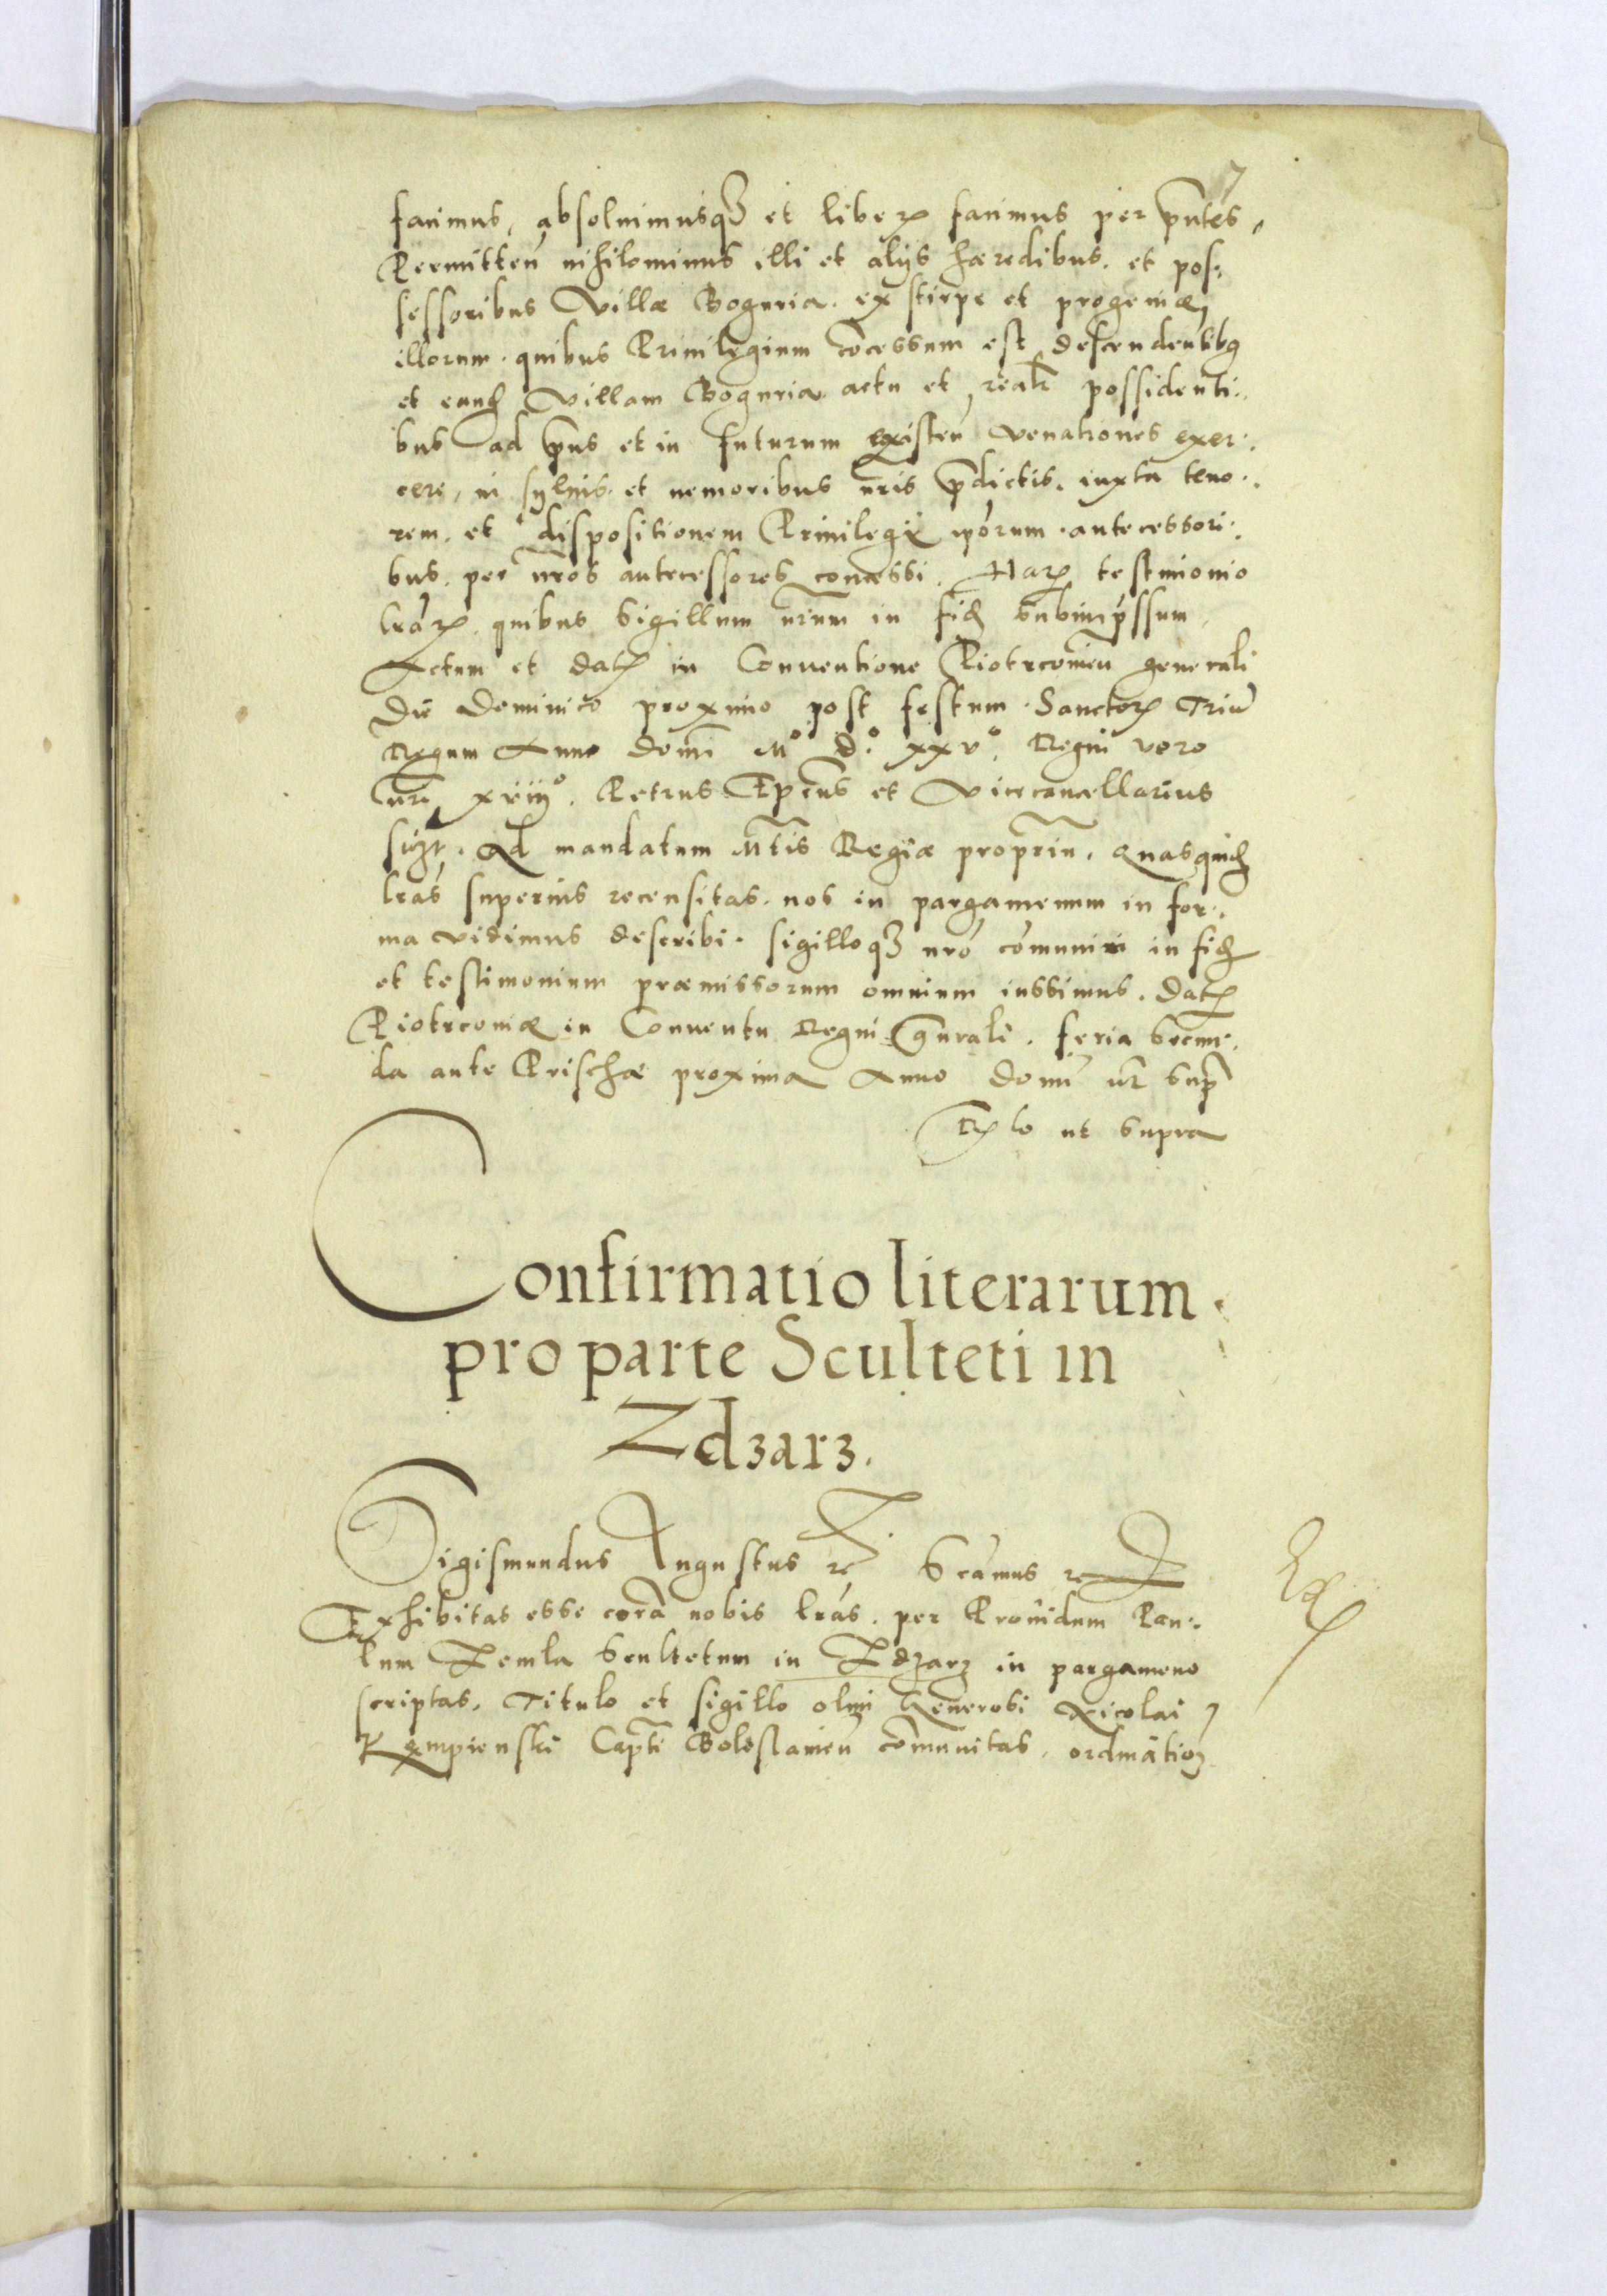 7
facimus, absoluimusq3 et liberꝝ facimus per pn̄tes,
Permitteñ nihilominus illi et alijs hæredibus. et pos:
sessoribus Villæ Boguria. ex stirpe et progeniæ
illorum. quibus Priuilegium cōcessum est descendentibꝯ
et eand̄ Villam Boguria actu et realr̄ possidenti:
bus ad pn̄s et in futurum existeñ venationes exer:
cere, in syluis et nemoribus nr̄is p̄dictis. iuxta teno:
rem. et dispositionem Priuilegij ipōrum antecessori:
bus. per nr̄os antecessores concessi. Harꝝ testimonio
lr̄arꝝ quibus Sigillum nr̄um in fid̄ subimp̄ssum
Actum et datꝝ in Conuentione Piotrcouieñ generali
die Dominico proximo post festum Sanctorꝝ Triū
Regum Anno domi M° d.° xxv°. Regni vero
nr̄i xviij°. Petrus Ep̄cus et Vicecancellarius
ssꝫt. Ad mandatum Mt̄is Regiæ propriū. Quasquid̄
lr̄as superius recensitas. nos in pargamenum in for:
ma vidimus describi. sigilloq3 nr̄o cōmuniri in fid̄
et testimonium præmissorum omnium iussimus. Datꝝ
Piotrcouiæ in Conuentu Regni gn̄rali. feria secun:
da ante Prischæ proxima Anno domi ut̄ sup̄
Rꝝ lo ut supra
Confirmatio literarum
pro parte Sculteti in
Zdzarz.
Sigismundus Augustus ꝛc̄ Scāmus ꝛc
Exhibitas esse corā nobis lr̄as. per Prouidum Pau:
lum Zemla Scultetum in Zdzarz in pargameno
scriptas. Titulo et sigillo olim Generosi Nicolai
Kempienski Capt̄i Bolestaineñ cōmunitas. ordinātioꝫ